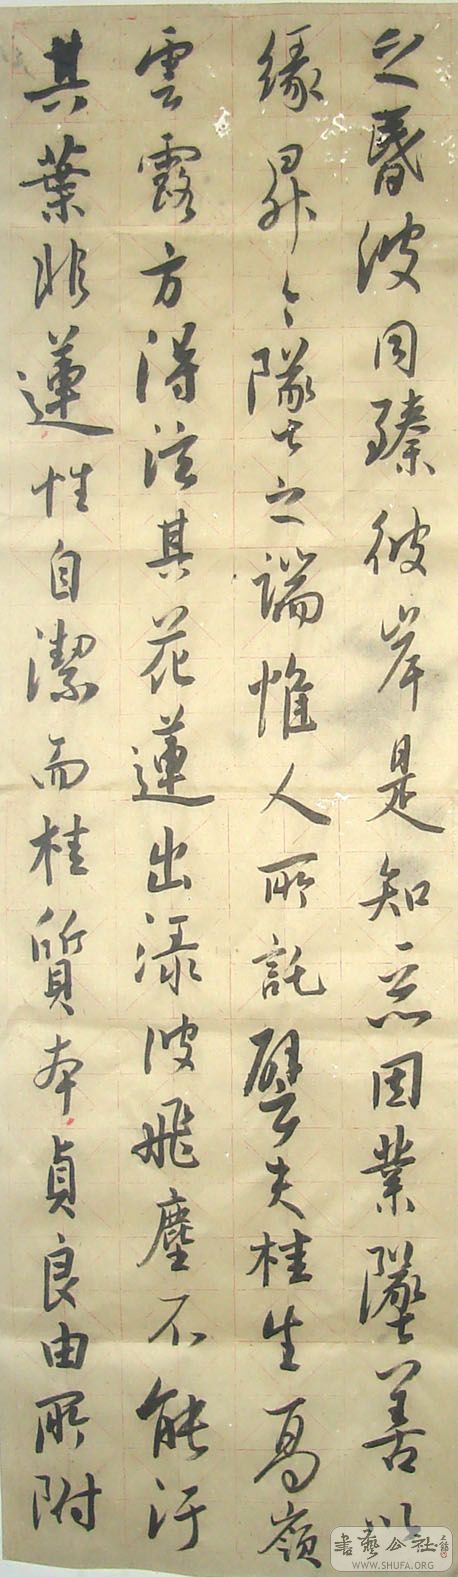 之昏波同臻彼岸是知惡因業墜善以
緣昇々墜之端惟人所託譬夫桂生高嶺
雲露方得泫其花蓮出淥波飛塵不能汙
其葉非蓮性自潔而桂質本貞良由所附
書藝公社
WWW.SHUFA.ORG